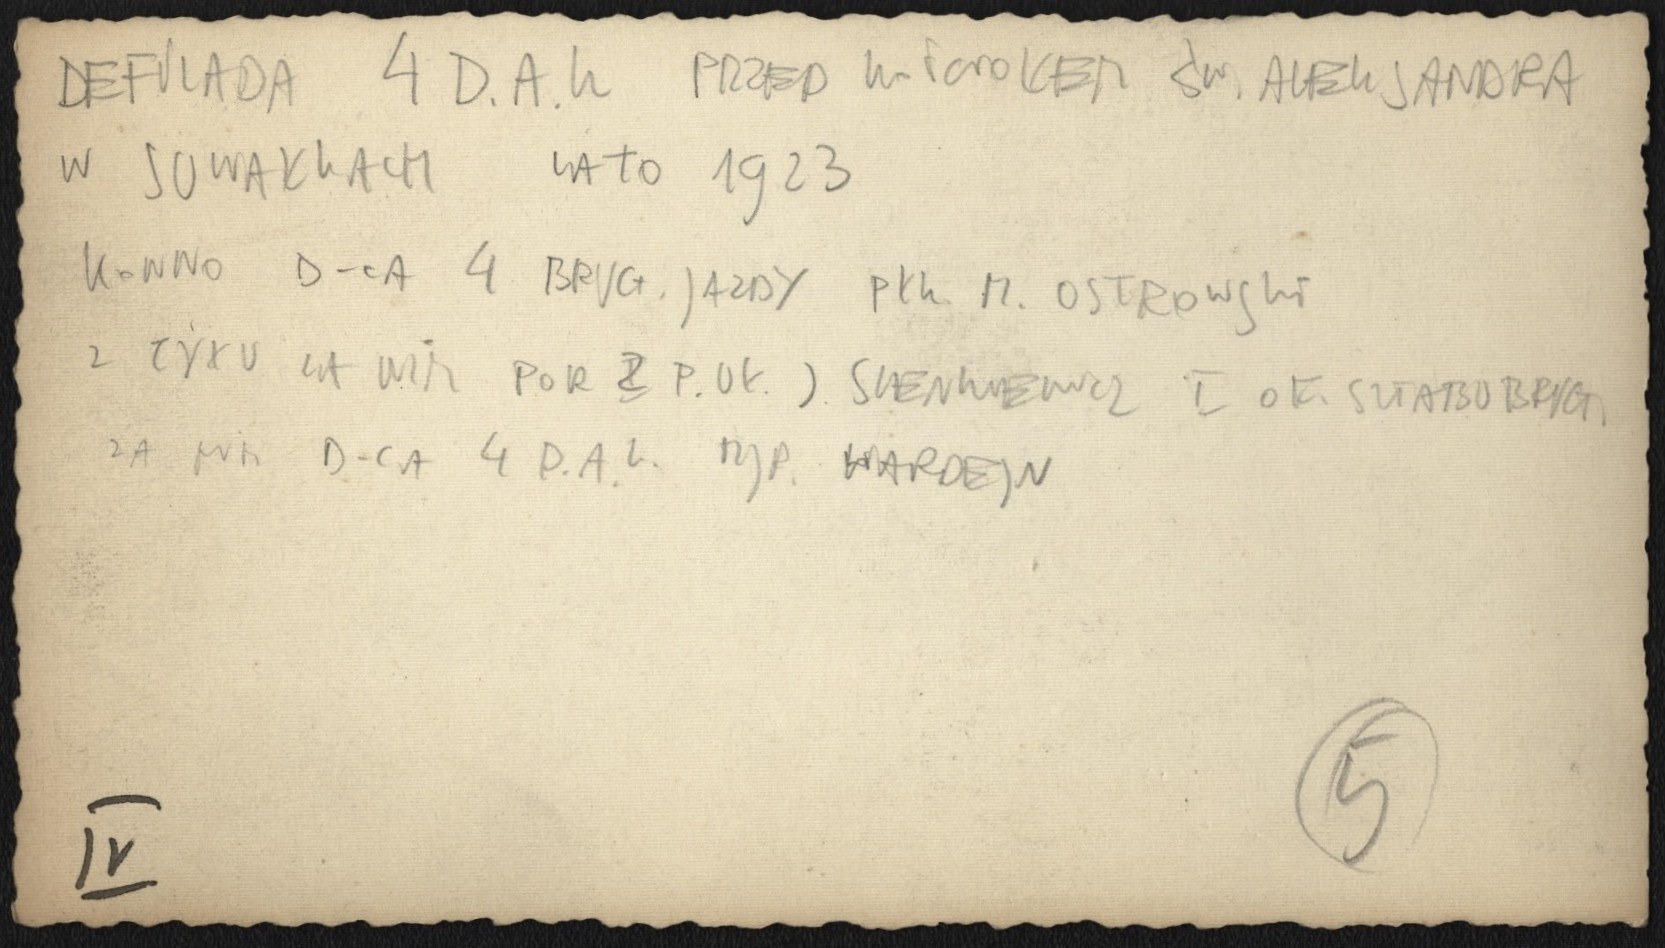 DEFILADA 4 D.A.K PRZED KOŚCIOŁEM ŚW. ALEKSANDRA
W SUWAŁKACH LATO 1923
KONNO D-CA 4 BRYG. JAZDY PŁK. M. OSTROWSKI
Z TYŁU ZA NIM POR 2 P. UŁ. J. SLENKIEWICZ I OF. SZTABU BRYG.
ZA NIM D-CA 4 D.A.K. MJR. WARDEJN
IV
5